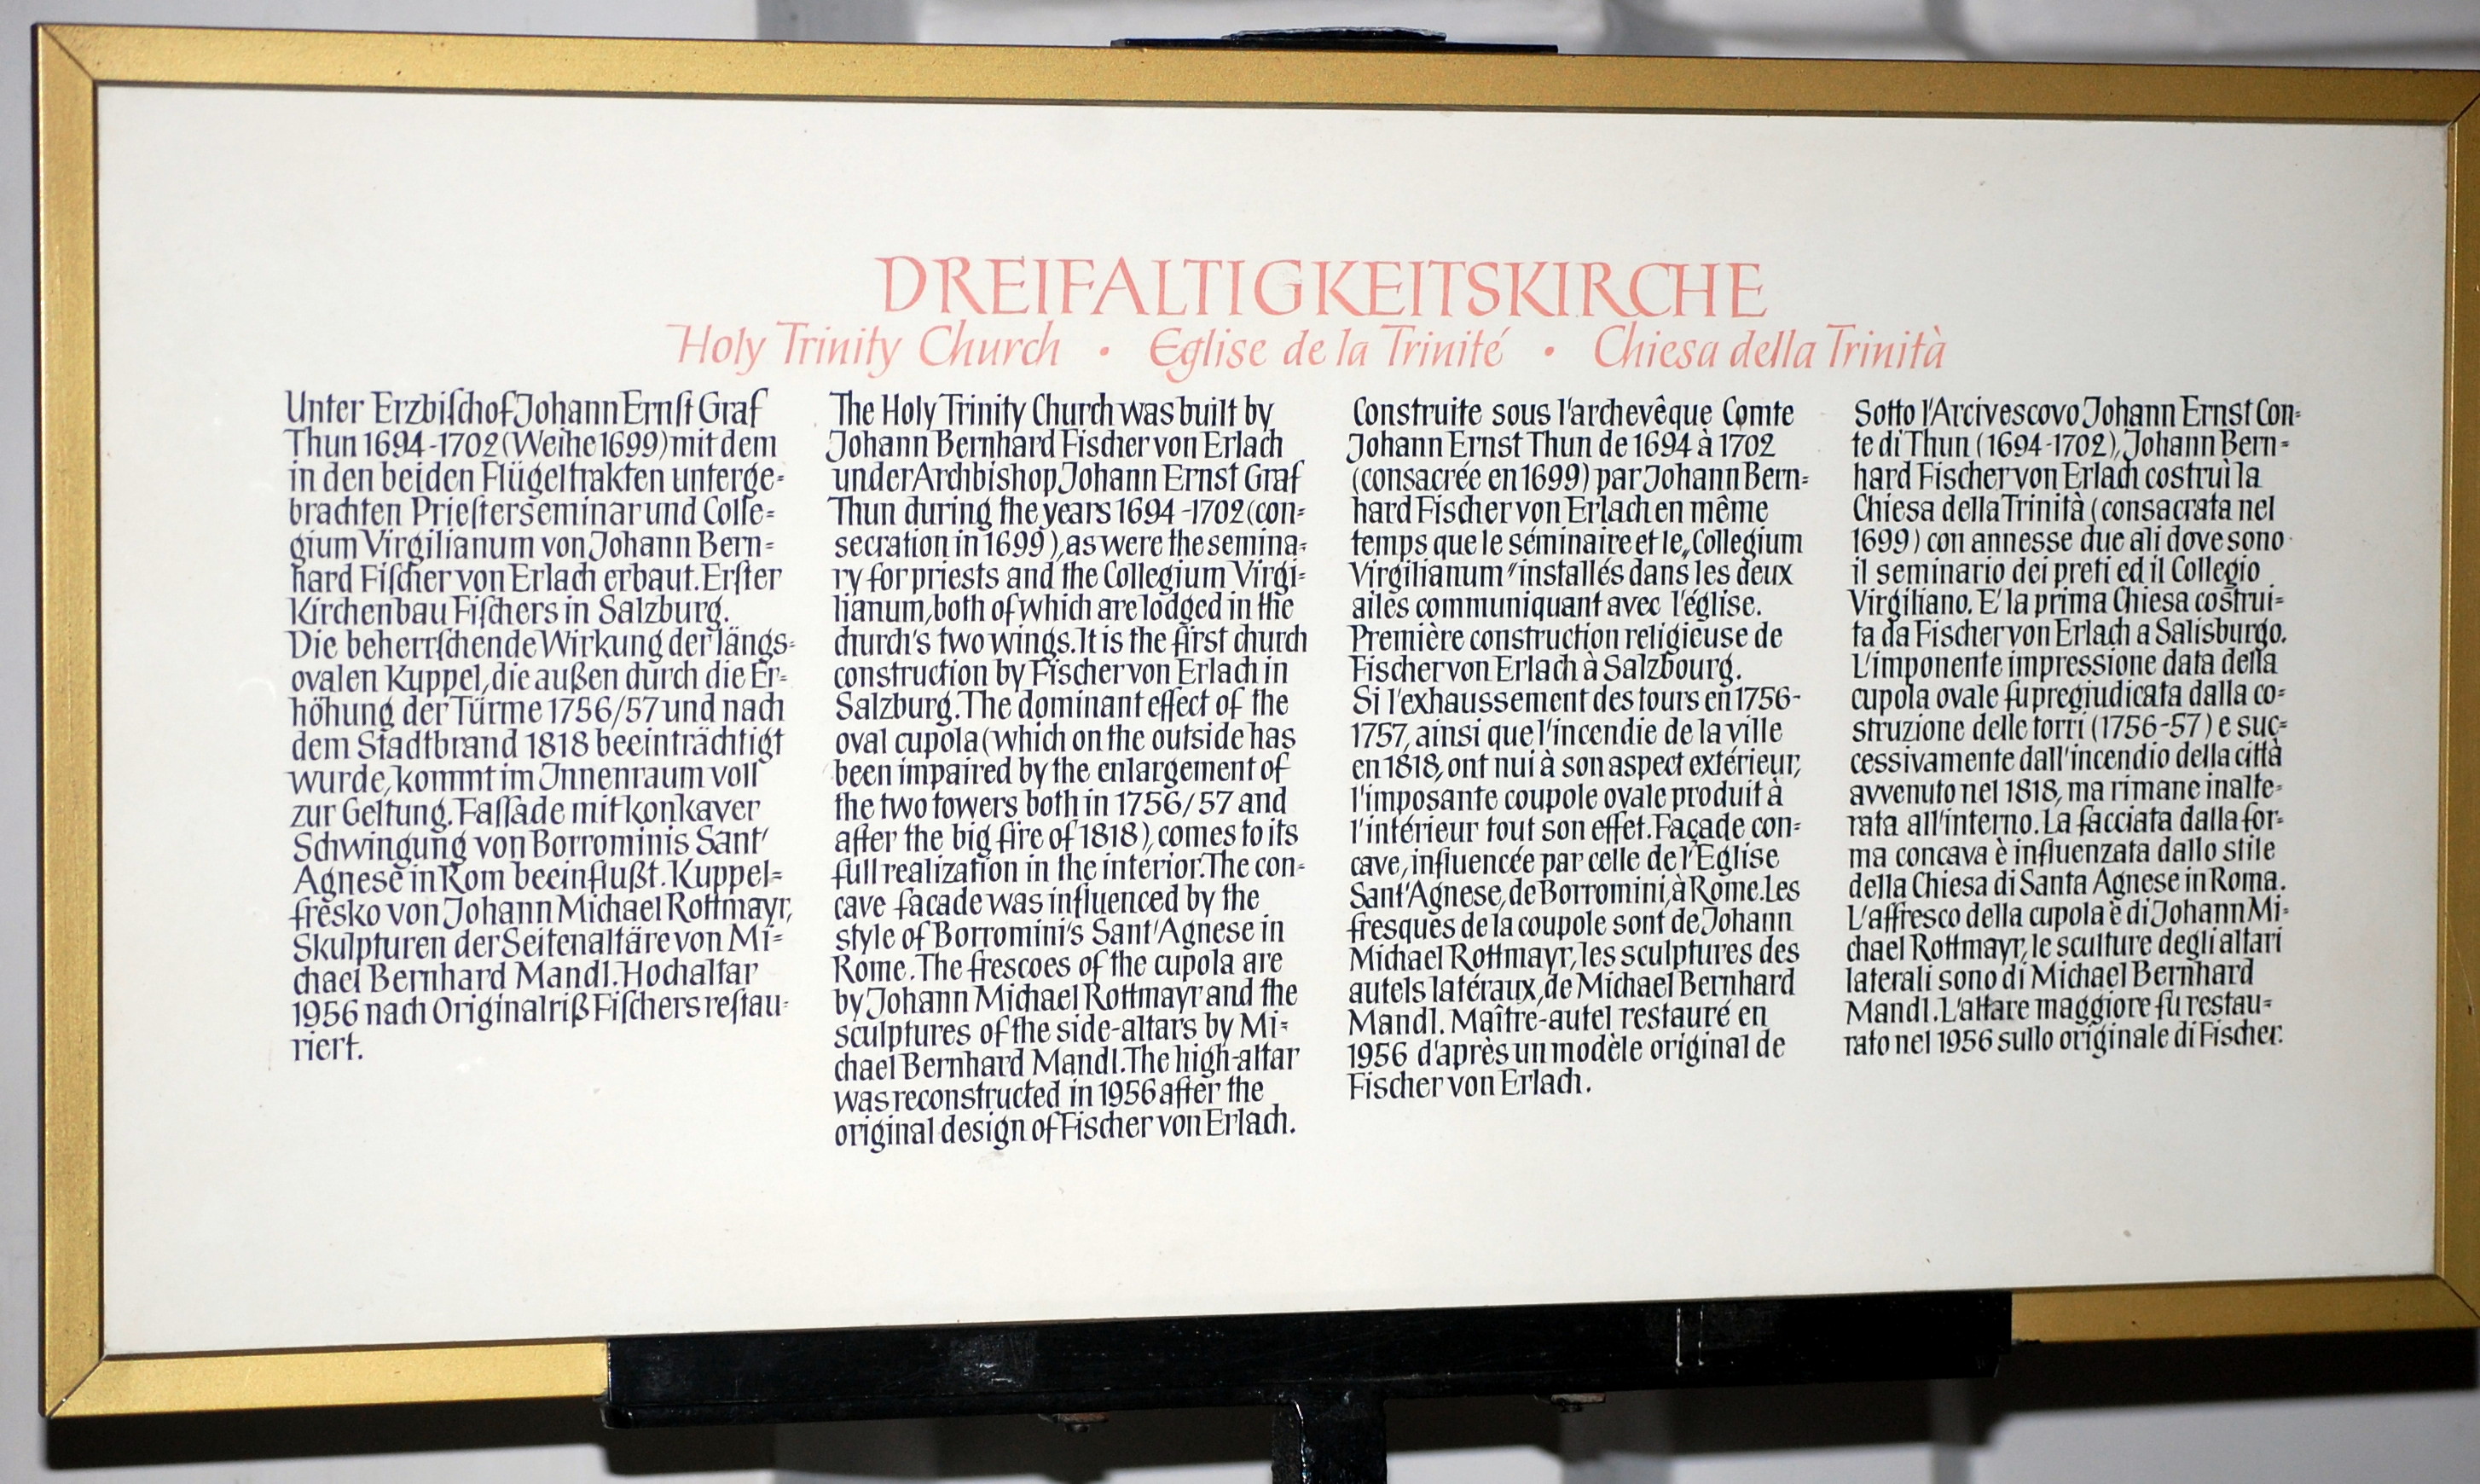 DREIFALTIGKEITSKIRCHE
Holy Trinity Church • Eglise de la Trinité • Chiesa della Trinità
Unter Erzbiſchof Johann Ernſt Graf
Thun 1694-1702 (Weihe 1699) mit dem
in den beiden Flügeltrakten unterge=
brachten Prieſterseminar und Colle=
gium Virgilianum von Johann Bern=
hard Fiſcher von Erlach erbaut. Erſter
Kirchenbau Fiſchers in Salzburg.
Die beherrſchende Wirkung der längs=
ovalen Kuppel, die außen durch die Er=
höhung der Türme 1756/57 und nach
dem Stadtbrand 1818 beeinträchtigt
wurde, kommt im Innenraum voll
zur Geltung. Faſſade mit konkaver
Schwingung von Borrominis Sant'
Agnese in Rom beeinflußt. Kuppel=
fresko von Johann Michael Rottmayr,
Skulpturen der Seitenaltäre von Mi=
chael Bernhard Mandl. Hochaltar
1956 nach Originalriß Fiſchers reſtau=
riert.
The Holy Trinity Church was built by
Johann Bernhard Fischer von Erlach
under Archbishop Johann Ernst Graf
Thun during the years 1694-1702 (con=
secration in 1699), as were the semina=
ry for priests and the Collegium Virgi=
lianum, both of which are lodged in the
church's two wings. It is the first church
construction by Fischer von Erlach in
Salzburg. The dominant effect of the
oval cupola (which on the outside has
been impaired by the enlargement of
the two towers both in 1756/57 and
after the big fire of 1818), comes to its
full realization in the interior. The con=
cave facade was influenced by the
style of Borromini's Sant'Agnese in
Rome. The frescoes of the cupola are
by Johann Michael Rottmayr and the
sculptures of the side-altars by Mi=
chael Bernhard Mandl. The high-altar
was reconstructed in 1956 after the
original design of Fischer von Erlach.
Construite sous l'archevêque Comte
Johann Ernst Thun de 1694 à 1702
(consacrée en 1699) par Johann Bern=
hard Fischer von Erlach en même
temps que le séminaire et le „Collegium
Virgilianum" installés dans les deux
ailes communiquant avec l'église.
Première construction religieuse de
Fischer von Erlach à Salzbourg.
Si l'exhaussement des tours en 1756-
1757, ainsi que l'incendie de la ville
en 1818, ont nui à son aspect extérieur,
l'imposante coupole ovale produit à
l'intérieur tout son effet. Façade con=
cave, influencée par celle de l'Eglise
Sant'Agnese, de Borromini, à Rome. Les
fresques de la coupole sont de Johann
Michael Rottmayr, les sculptures des
autels latéraux, de Michael Bernhard
Mandl. Maître-autel restauré en
1956 d'après un modèle original de
Fischer von Erlach.
Sotto l'Arcivescovo Johann Ernst Con=
te di Thun (1694-1702), Johann Bern=
hard Fischer von Erlach costruì la
Chiesa della Trinità (consacrata nel
1699) con annesse due ali dove sono
il seminario dei preti ed il Collegio
Virgiliano. E' la prima Chiesa costrui=
ta da Fischer von Erlach a Salisburgo.
L'imponente impressione data della
cupola ovale fu pregiudicata dalla co=
struzione delle torri (1756-57) e suc=
cessivamente dall'incendio della città
avvenuto nel 1818, ma rimane inalte=
rata all'interno. La facciata dalla for=
ma concava è influenzata dallo stile
della Chiesa di Santa Agnese in Roma.
L'affresco della cupola è di Johann Mi=
chael Rottmayr, le sculture degli altari
laterali sono di Michael Bernhard
Mandl. L'altare maggiore fu restau=
rato nel 1956 sullo originale di Fischer.